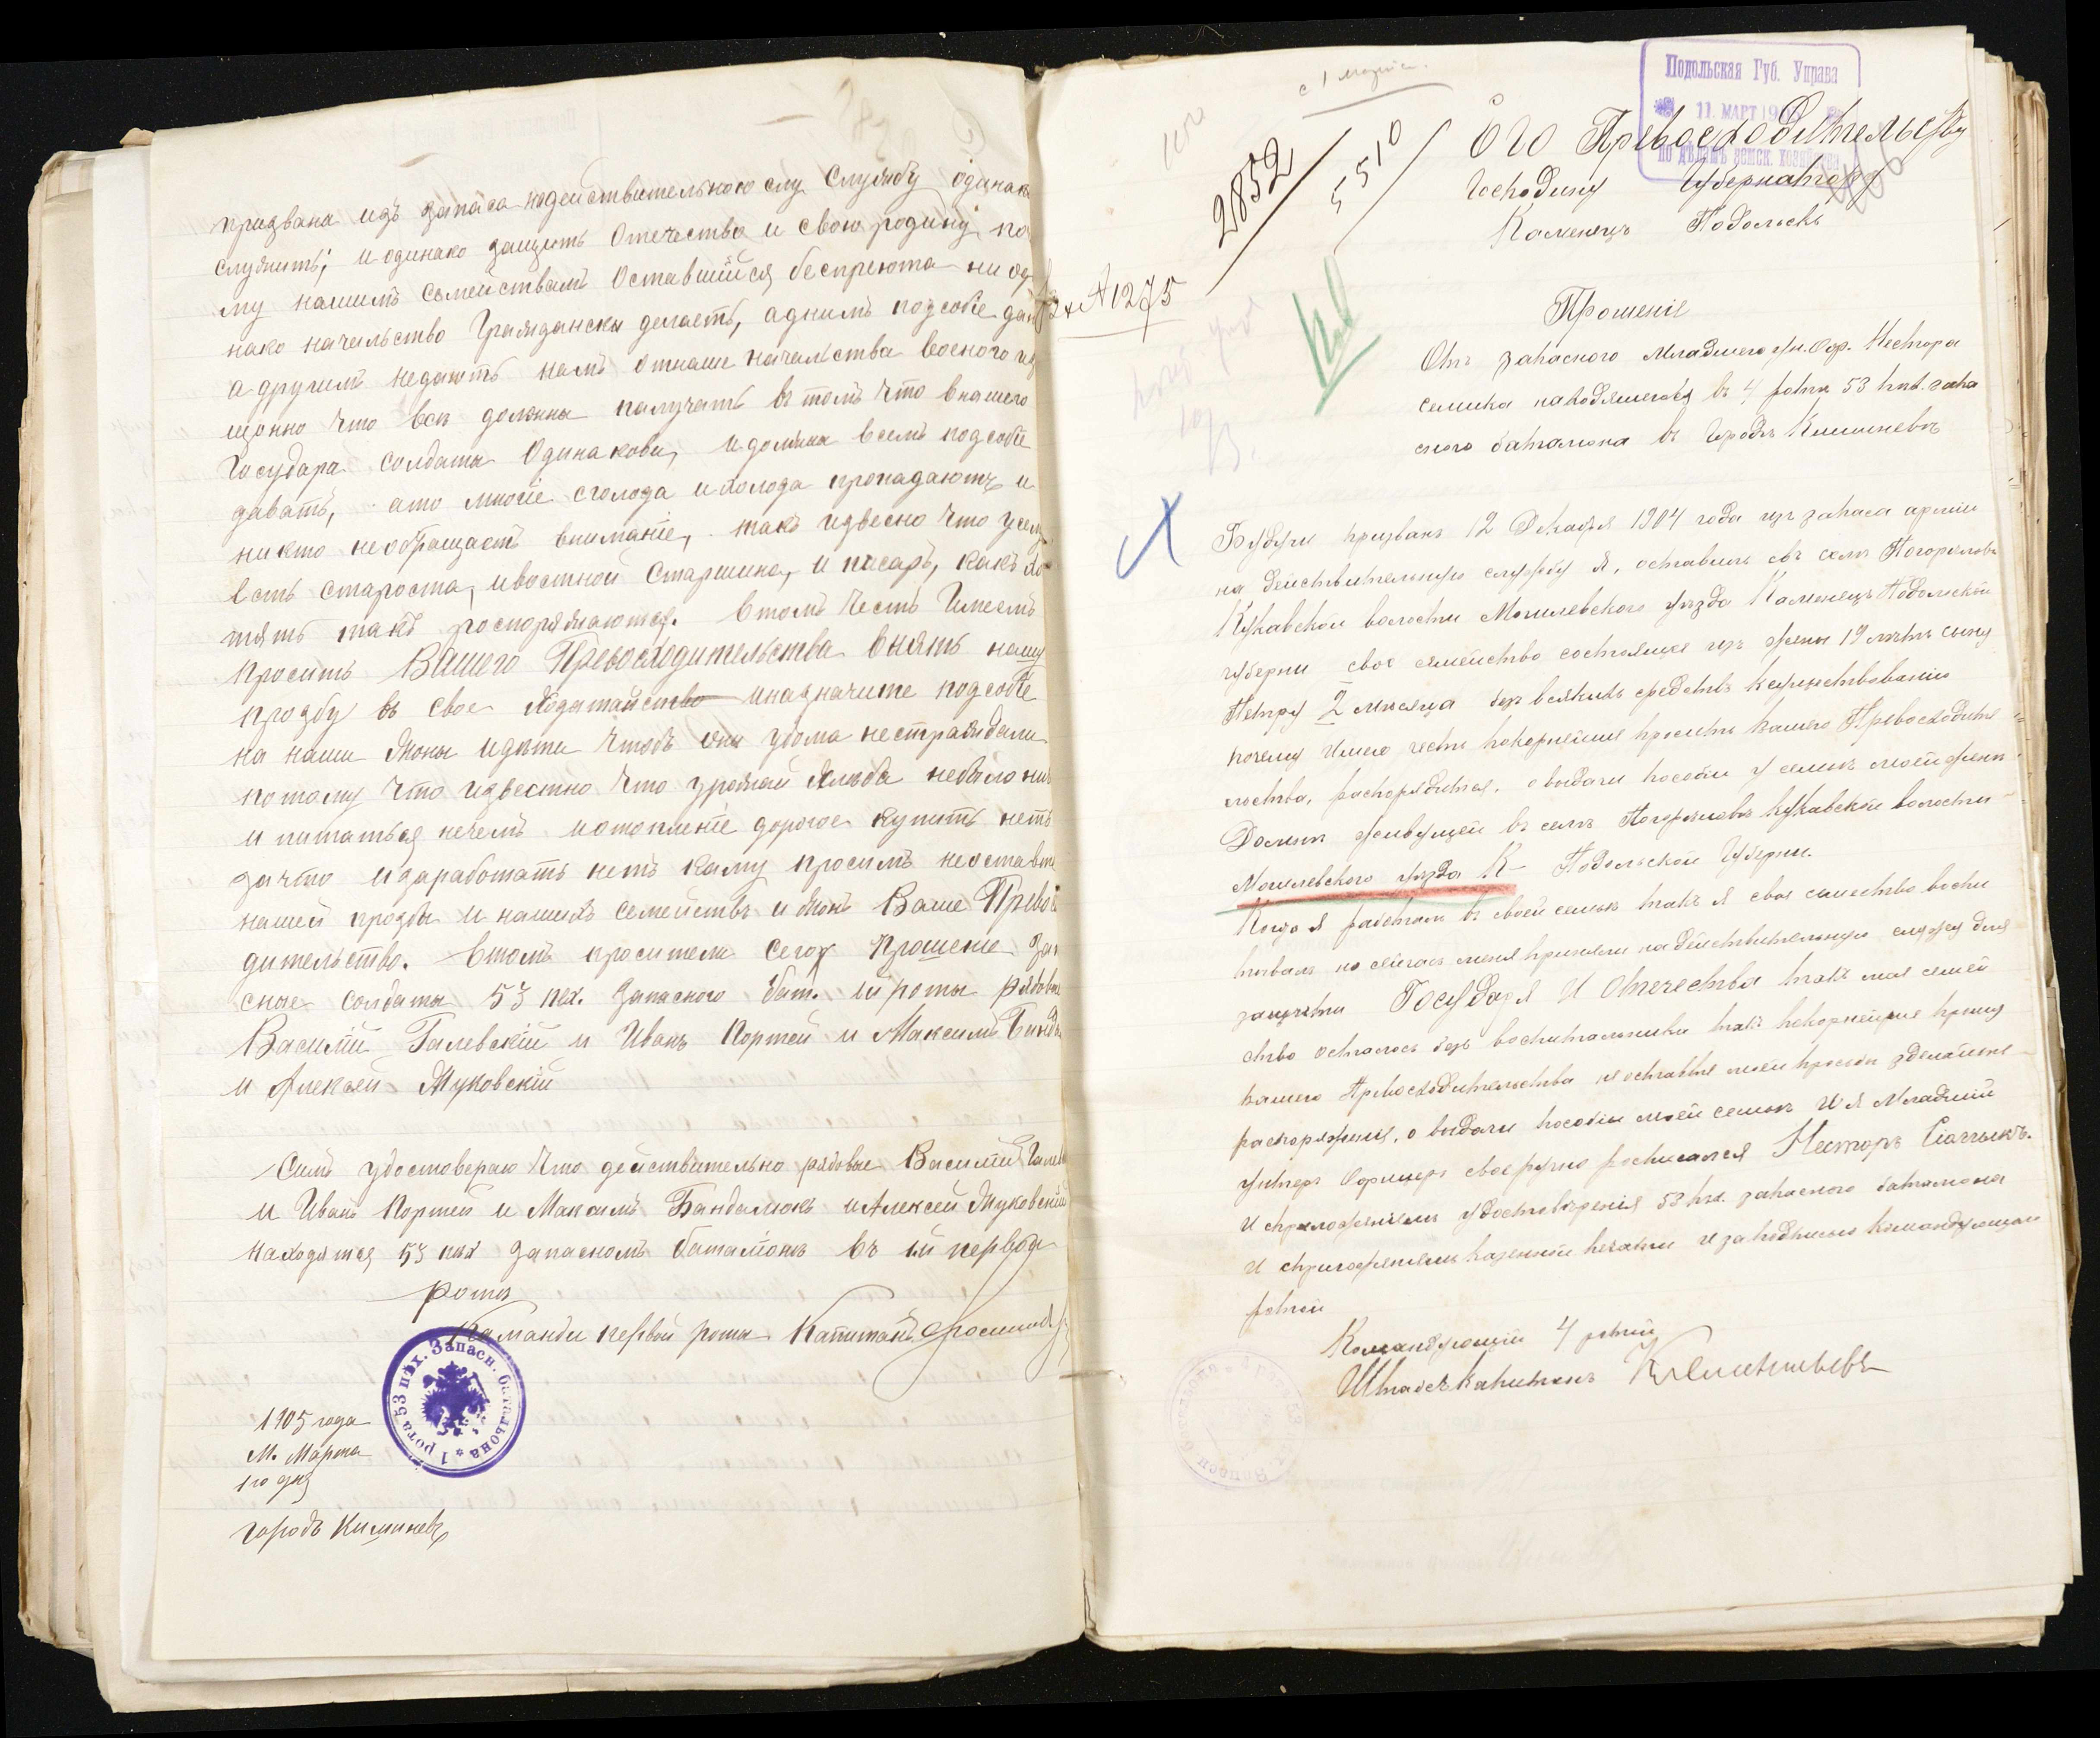 призвана изъ запаса надействительною слу службу одинако
служить; и одинако защить Отечество и свою родину, по
му нашимъ семействамъ Оставшийся беспреюта ни од
нако начильство Граждански делаетъ, аднимъ подсобіе даю
а другимъ недаютъ намъ отнаше началства военого из
що́нно что всѣ должны палучать втомъ что внашего
Государа солдаты Одинакови, идолжна всемъ подсобіе
давать, ато многіе сголода ихолода пропадаютъ и
никто необращаетъ вниманіе, такъ идвесно что усем
Есть староста, ивостной Старшина, и писаръ, какъ хо
тять такъ роспоряжаются. Втомъ Честь Имеемъ
просить Вашего Превосходительства внять нашу
прозбу въ свое Ходатайство иназначите подсобіе
на наши жоны идѣти чтобъ они удома нестраждали
потому что известно что урожай хлѣба небыло ни
и питаться нечемъ иотопленіе дорогое купить нетъ
зачто изаработать нетъ каму просимъ неоставте
нашей прозбы и нашихъ семействъ и жонъ Ваше Превос
дительство. Втомъ просители сего Прошение Зап
сные солдаты 53 пех. Запасного бат. 1й роты рядовые
Василій Галевскій и Иванъ Портей и Максимъ Банда
и Алексей Жуковскій
Симъ удостовераю что действительно рядовые Василій Галев
и Иванъ Портей и Максимъ Бандалюкъ иАлексей Жуковский
находятся 53 пех запасномъ баталіонѣ въ 1й первой
роты
Команди первой роты Капитанъ
1 рота 53 пѣх. Запасн. батальона
1905 года
М. Марта
1го дня
городъ Кишиневъ
с 1 марта.
Подольская Губ. Управа
11. МАРТ 190
по дѣламъ земск. хозяйства
2852
5510
Его Превосходительству
Господину Губернатору
Каменецъ Подольскъ
№ 1275
Прошеніе
Отъ запасного Младшего Ун. Оф. Нестора
семика находящегося въ 4 роты 53 пех. запа
сного баталиона въ Городъ Кишиневъ
Будучи призванъ 12 Декабря 1904 года изъ запаса арміи
на действительную службу я, оставилъ въ селѣ Погорѣловъ
Кукавской волости Могилевского уѣзда Каменецъ Подольской
губерни свое семейство состоящее изъ жены 19 лѣтъ сыну
Петру 2 мѣсяца безъ всякихъ средствъ ксуществованию
почему Имею честь покорнейше просить вашего Превосходите
льства, распорядится, овыдачи пособии у семьѣ моей жены
Домнѣ живущей въ селѣ Погорѣловъ Кукавской волости
Могилевского уѣзда К Подольской Губерни.
Когда я работалъ въ своей семьѣ такъ я свое семество воспи
тывалъ но сейчасъ меня приняли на действительную службу для
защиты Государя И Отечества такъ мая семей
ство осталось безъ воспитальника такъ покорнейше прошу
вашего Превосходительства не оставте моей просьбы зделайте
распоряжения, о выдачи пособіи моей семьѣ И я Младший
унтеръ Офицеръ своеручно росписался Несторъ
И сприложениемъ удостоверения 53 пех. запасного баталиона
И сприложениемъ казенной печати изаподписью командующаго
ротой
Командующій 4 ротой
Штабсъ Капитанъ